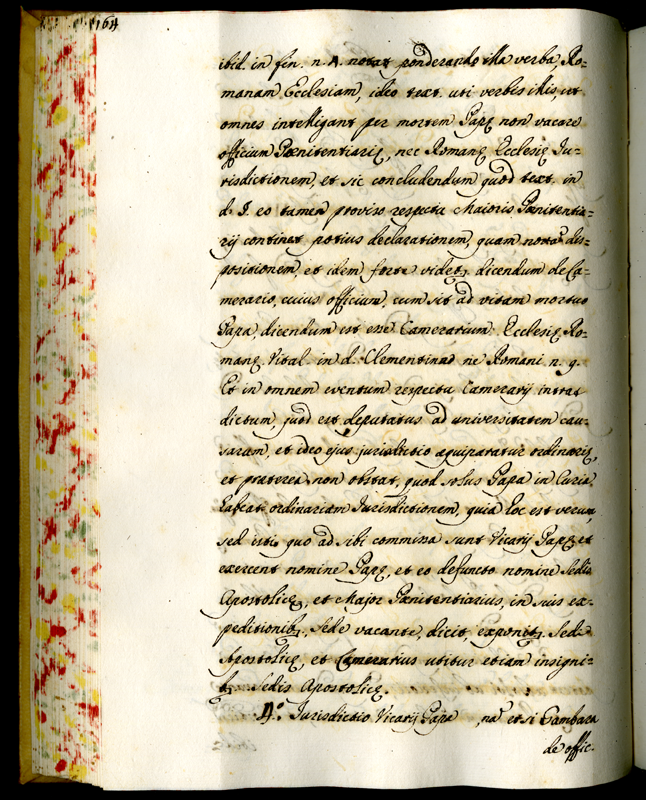 164
ibid. in fin. n. A. notat ponderando illa verba, Ro-
manam Ecclesiam, ideo text. uti verbis illis, ut
omnes intelligant per mortem Papę non vacare
officium Pœnitentiarię, nec Romanę Ecclesię Ju-
risdictionem, et sic concludendum quod text. in
d. §. eo tamen proviso respectu Maioris Pœnitentia-
rij continet potius declarationem, quam notat dis-
positionem, et idem forte videtr dicendum de Ca-
merario, cuius officium, cum sit ad vitam mortuo
Papa, dicendum est esse Camerarium Ecclesię Ro-
manę. Vital. in d. Clementina ne Romani n. 9.
Et in omnem eventum respectu Camerarij intrat
dictum, quod est deputatus ad universitatem cau-
sarum, et ideo ejus jurisdictio aquiparatur ordinarię,
et praterea non obstat, quod solus Papa in Curia
habeat ordinariam Jurisdictionem, quia hoc est verum,
sed isti, quo ad sibi commissa sunt Vicarij Papę et
exercent nomine Papę, et eo defuncto nomine Sedis
Apostolicę, et Major Pœnitentiarius, in suis ex-
peditionib. Sede vacante, dicit, exponitr Sedi
Apostolicę, et Camerarius utitur etiam insigni-
b. Sedis Apostolicę.
4.° Jurisdictio Vicarij Papę, na et si Gambara
de offic-